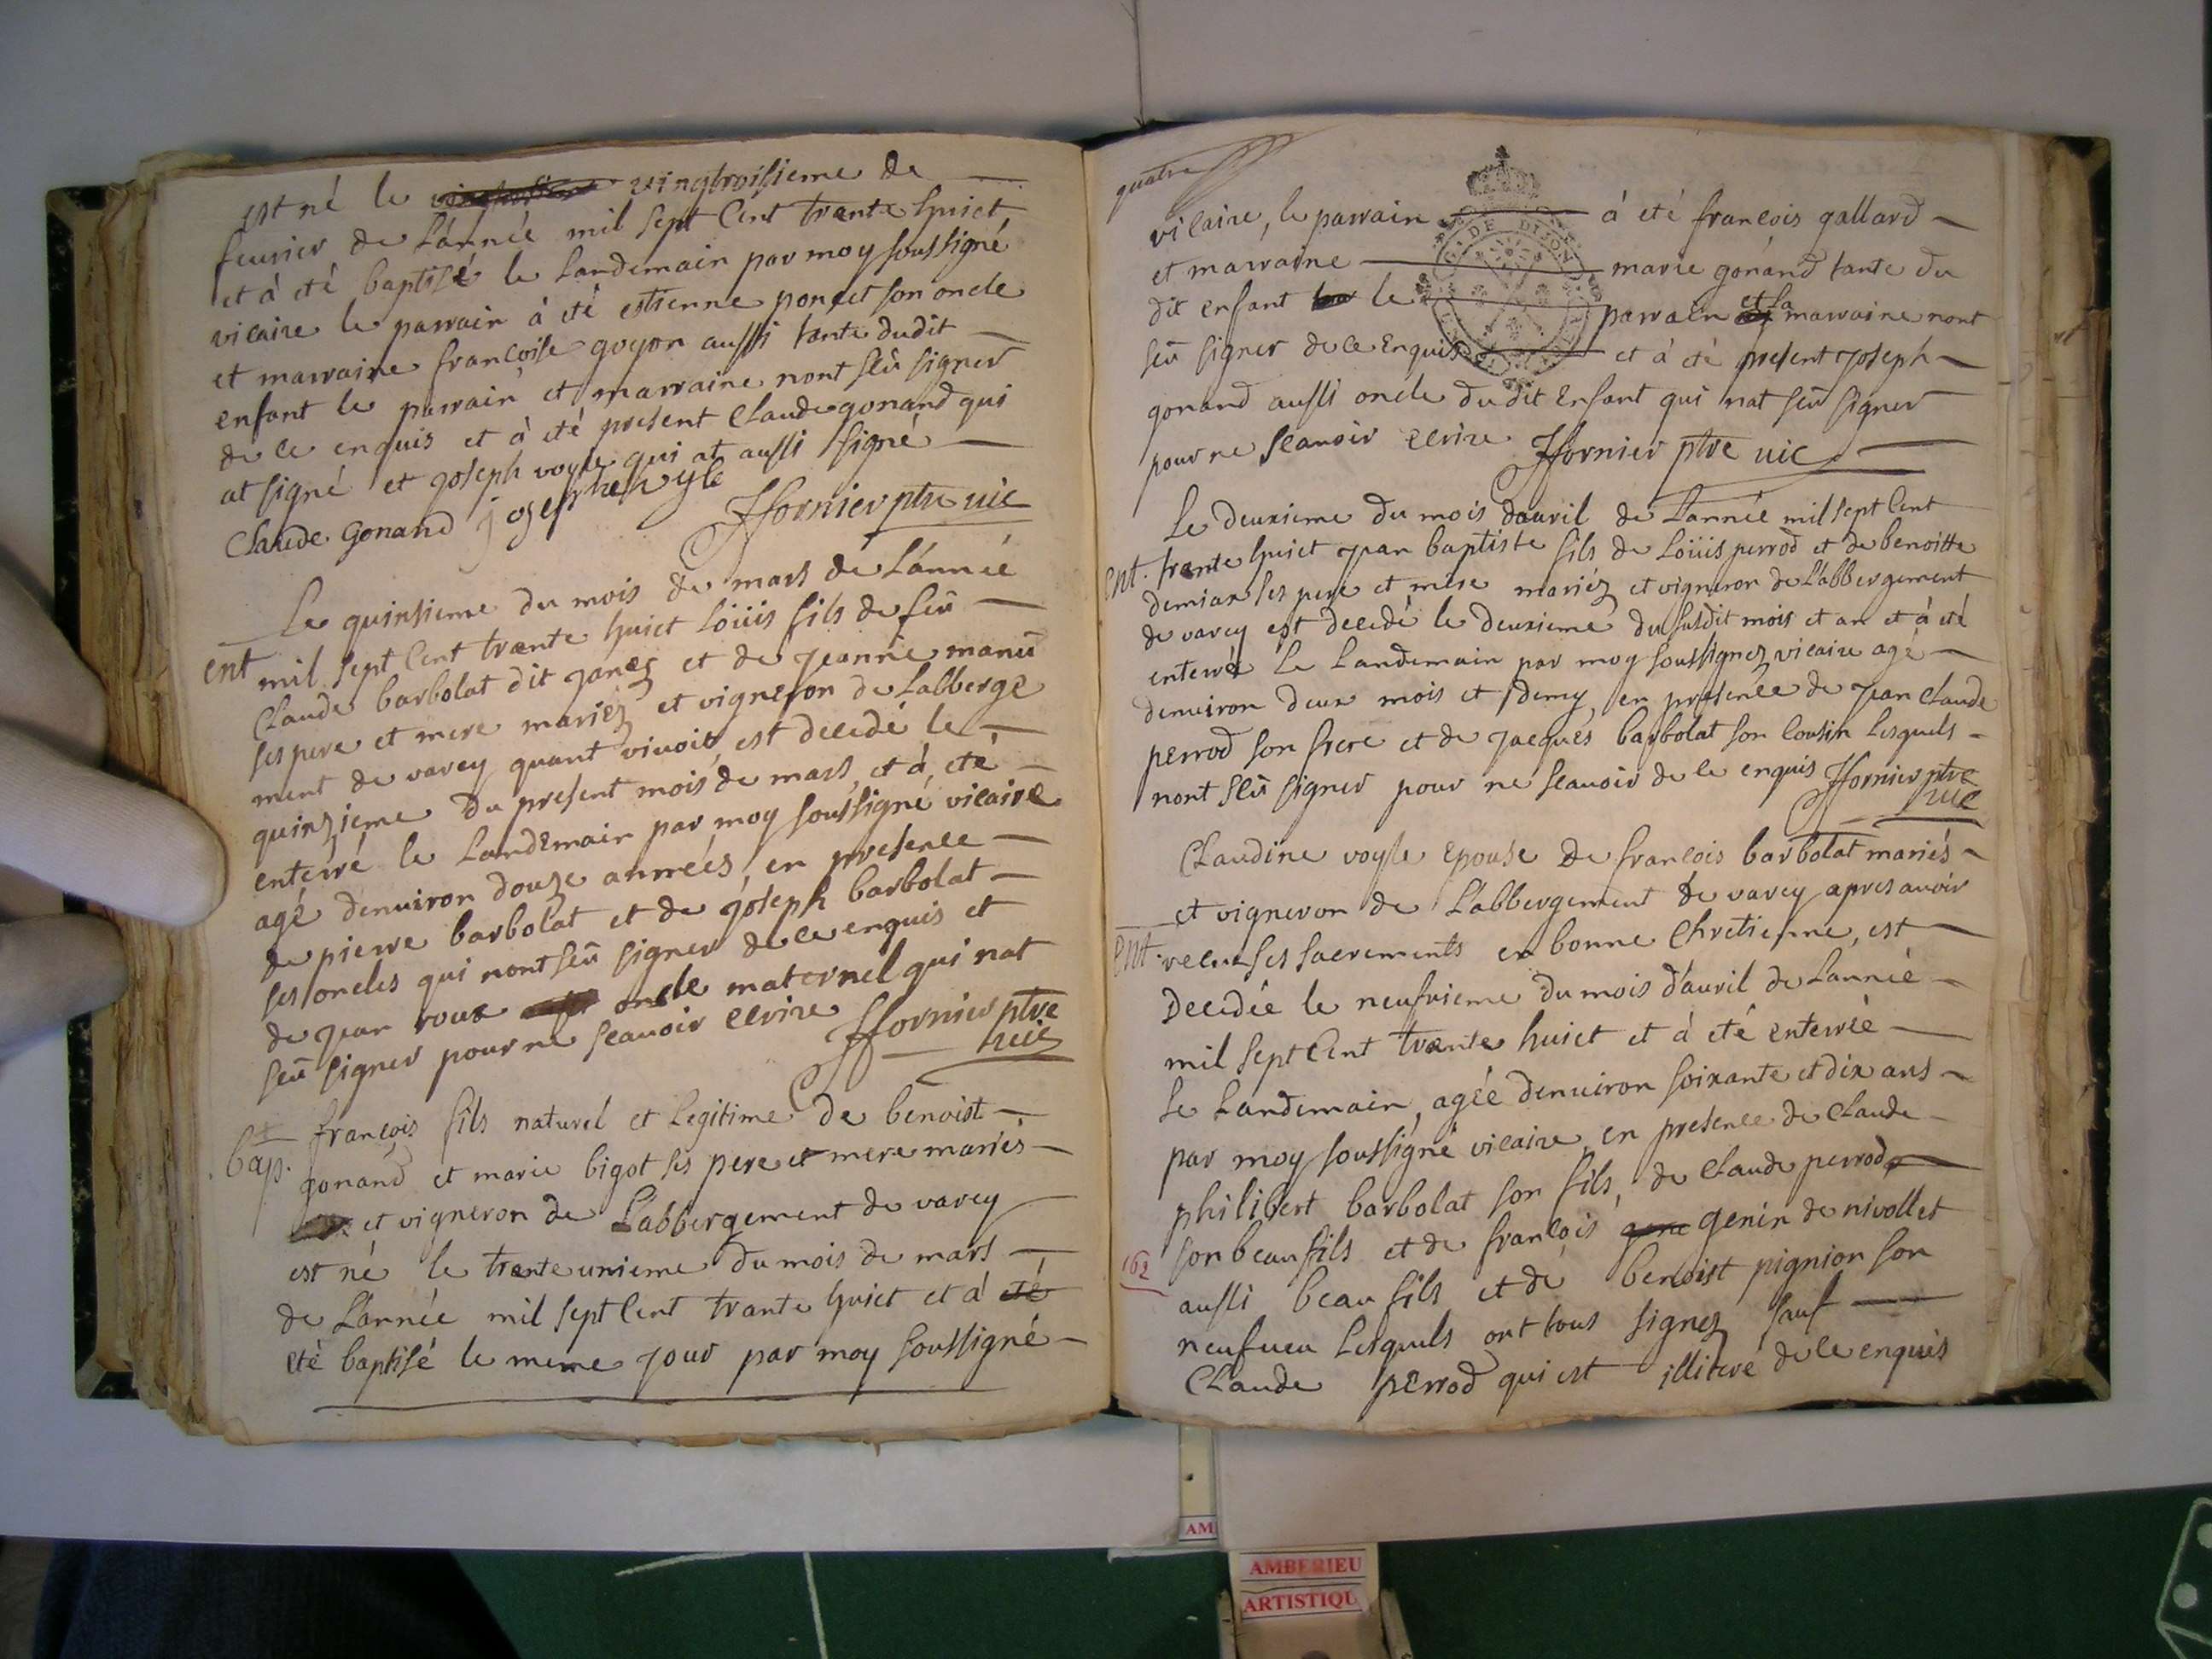 est né le vingtroisieme de
feurier de L'année mil sept Cent trente huict
et à eté baptisé le Landemain par moy soussigné
vicaire le parrain à eté estienne poncet son oncle
et marraine françoise goyon aussi tante dudit
enfant le parrain et marraine nont sëu signer
de ce enquis et à eté present Claude gonand qui
at signé et joseph voyle qui at aussi signé
Claude Gonand joseph voyle
Jfornier ptre uic
Le quinsieme du mois de mars de L'année
ent mil sept Cent trante huict Loüis fils de feû
Claude barbolat dit janez et de jeanne manû
ses pere et mere mariez et vigneron de Labberge
ment de varey quant vivoit, est decedé le
quinzieme du present mois de mars, et à eté
enterré le Landemain par moy soussigné vicaire
agé denuiron douze années, en presence
de pierre barbolat et de joseph barbolat
ses oncles qui nont sëu signer de ce enquis et
de jean roux oncle maternel qui nat
sëu signer pour ne scauoir ecrire Jfornier ptre
uic
françois fils naturel et Legitime de benoist
bap. gonand et marie bigot ses pere et mere mariés
et vigneron de L'abbergement de varey
est né le trante unieme du mois de mars
de L'année mil sept Cent trante huict et à eté
eté baptisé le meme jour par moy soussigné
quatre
DE DIJON
vicaire, le parrain à eté francois gallard
et marraine marie gonand tante du
dit enfant le parrain et la marraine nont
sëu signer de ce enquis et à eté present joseph
gonand aussi oncle dudit enfant qui nat sëu signer
pour ne scauoir ecrire Jfornier ptre uic
Le deuxieme du mois dauril de L'année mil sept Cent
ent. trente huict jean baptiste fils de Loüis perrod et de benoitte
demiax ses pere et mere mariéz et vigneron de L'abbergement
de varey est decedé le deuxieme du susdit mois et an et à eté
enterré Le Landemain par moy soussignez vicaire agé
denuiron deux mois et demy, en presence de jean Claude
perrod son frere et de jacques barbolat son Cousin Lesquels
nont sëu signer pour ne scauoir de ce enquis Jfornier ptre
uic
Claudine voyle epouse de francois barbolat mariés
et vigneron de L'abbergement de varey apres auoir
ent. receu ses sacrements en bonne Chretienne, est
Decedée le neufuieme du mois d'auril de L'année
mil sept Cent trante huict et à eté enterrée
le Landemain, agée denuiron soixante et dix ans
par moy soussigné vicaire en presence de Claude
philibert barbolat son fils, de Claude perrod
162 son beau fils et de françois genin de nivollet
aussi beau fils et de benoist pignion son
neufueu Lesquels ont tous signez sauf
Claude perrod qui est illiteré de ce enquis
AM
AMBERIEU
ARTISTIQU